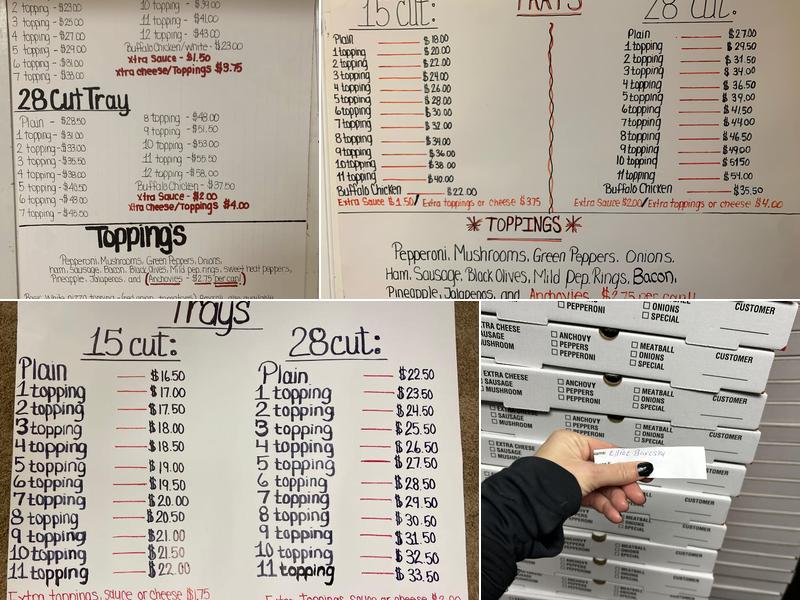 2 topping - $23.00
3 topping - $25.00
4 topping - $27.00
5 topping - $29.00
6 topping - $31.00
7 topping - $33.00
10 topping - $39.00
11 topping - $41.00
12 topping - $43.00
Buffalo Chicken/white - $23.00
xtra Sauce - $1.50
xtra cheese/Toppings $3.75
28 Cut Tray
Plain - $28.50
1 topping - $31.00
2 topping - $33.00
3 topping - $35.50
4 topping - $38.00
5 topping - $40.50
6 topping - $43.00
7 topping - $45.50
8 topping - $48.00
9 topping - $51.50
10 topping - $53.00
11 topping - $55.50
12 topping - $58.00
Buffalo Chicken - $37.50
xtra Sauce - $2.00
xtra Cheese/Toppings $4.00
Topping's
Pepperoni, Mushrooms, Green Peppers, Onions,
ham, Sausage, Bacon, Black Olives, Mild pep. rings, sweet heat peppers,
Pineapple, Jalapenos, and (Anchovies - $2.75 per can!)
TRAYS
15 cut:
Plain $18.00
1 topping $20.00
2 topping $22.00
3 topping $24.00
4 topping $26.00
5 topping $28.00
6 topping $30.00
7 topping $32.00
8 topping $34.00
9 topping $36.00
10 topping $38.00
11 topping $40.00
Buffalo Chicken $22.00
Extra Sauce $1.50/Extra toppings or cheese $3.75
28 cut:
Plain $27.00
1 topping $29.50
2 topping $31.50
3 topping $34.00
4 topping $36.50
5 topping $39.00
6 topping $41.50
7 topping $44.00
8 topping $46.50
9 topping $49.00
10 topping $51.50
11 topping $54.00
Buffalo Chicken $35.50
Extra Sauce $2.00/Extra toppings or cheese $4.00
TOPPINGS
Pepperoni, Mushrooms, Green Peppers, Onions,
Ham, Sausage, Black Olives, Mild Pep. Rings, Bacon,
Pineapple, Jalapenos, and Anchovies $2.75 per can!!
Trays
15 cut:
Plain $16.50
1 topping $17.00
2 topping $17.50
3 topping $18.00
4 topping $18.50
5 topping $19.00
6 topping $19.50
7 topping $20.00
8 topping $20.50
9 topping $21.00
10 topping $21.50
11 topping $22.00
Extra toppings, sauce or cheese $1.75
28 cut:
Plain $22.50
1 topping $23.50
2 topping $24.50
3 topping $25.50
4 topping $26.50
5 topping $27.50
6 topping $28.50
7 topping $29.50
8 topping $30.50
9 topping $31.50
10 topping $32.50
11 topping $33.50
Extra toppings, sauce or cheese $2.00
PEPPERONI ONIONS SPECIAL CUSTOMER
XTRA CHEESE ANCHOVY MEATBALL
SAUSAGE PEPPERS ONIONS
MUSHROOM PEPPERONI SPECIAL CUSTOMER
EXTRA CHEESE ANCHOVY MEATBALL
SAUSAGE PEPPERS ONIONS
MUSHROOM PEPPERONI SPECIAL CUSTOMER
EXTRA CHEESE ANCHOVY MEATBALL
SAUSAGE PEPPERS ONIONS
MUSHROOM PEPPERONI SPECIAL CUSTOMER